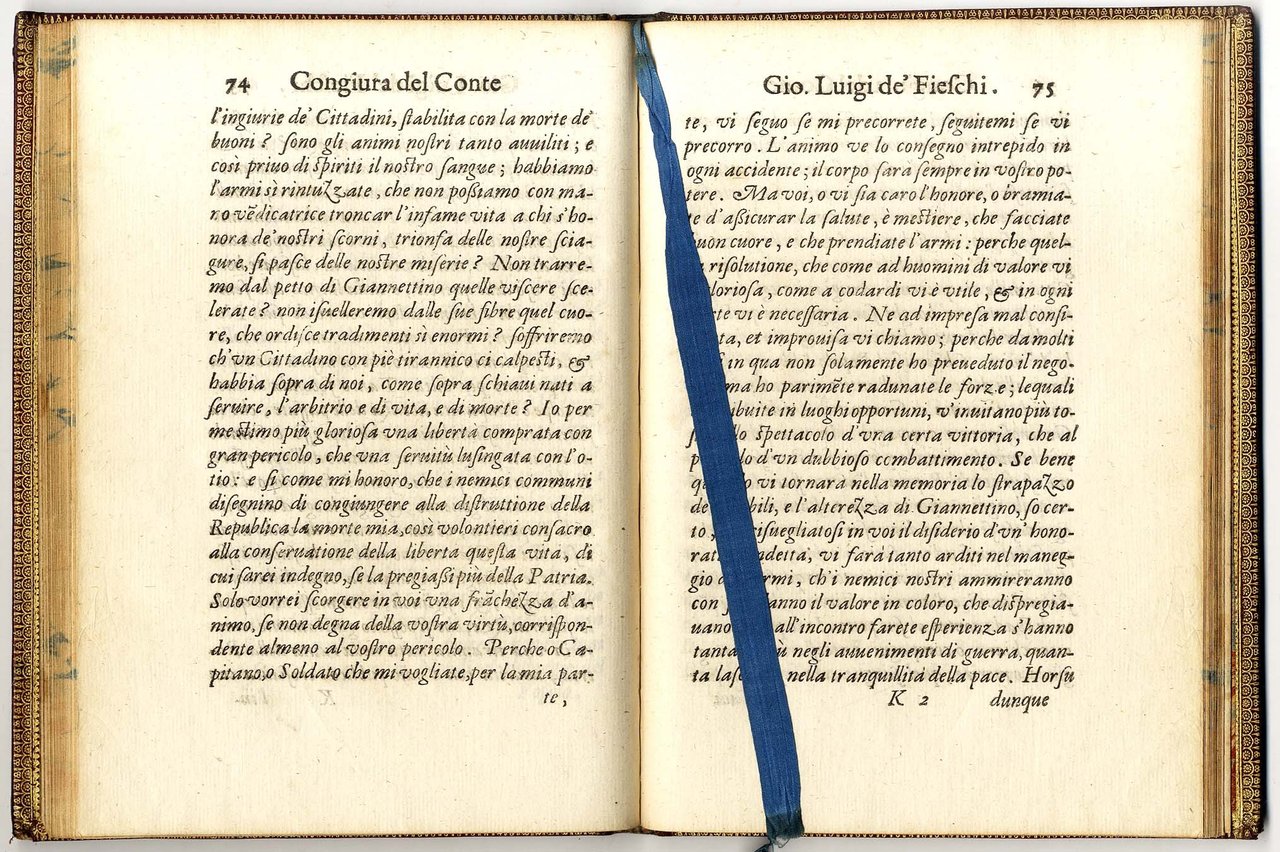 74 Congiura del Conte
l'ingiurie de' Cittadini, ſtabilita con la morte de'
buoni ? ſono gli animi noſtri tanto auuiliti ; e
così priuo di ſpiriti il noſtro ſangue ; habbiamo
l'armi sì rintuzzate , che non poſſiamo con ma-
no vẽdicatrice troncar l'infame vita a chi s'ho-
nora de' noſtri ſcorni , trionfa delle noſtre ſcia-
gure, ſi paſce delle noſtre miſerie ? Non trarre-
mo dal petto di Giannettino quelle viſcere ſce-
lerate ? non iſuelleremo dalle ſue fibre quel cuo-
re, che ordiſce tradimenti sì enormi ? ſoffriremo
ch'vn Cittadino con piè tirannico ci calpeſti, &
habbia ſopra di noi , come ſopra ſchiaui nati a
ſeruire, l'arbitrio e di vita, e di morte ? Io per
me ſtimo più glorioſa vna libertà comprata con
gran pericolo , che vna ſeruitù luſingata con l'o-
tio : e ſi come mi honoro, che i nemici communi
diſegnino di congiungere alla diſtruttione della
Republica la morte mia, così volontieri conſacro
alla conſeruatione della libertà queſta vita , di
cui ſarei indegno, ſe la pregiaſſi più della Patria.
Solo vorrei ſcorgere in voi vna frãchezza d'a-
nimo, ſe non degna della voſtra virtù, corriſpon-
dente almeno al voſtro pericolo . Perche o Ca-
pitano, o Soldato che mi vogliate, per la mia par-
te ,
Gio. Luigi de' Fieſchi . 75
te, vi ſeguo ſe mi precorrete , ſeguitemi ſe vi
precorro . L'animo ve lo conſegno intrepido in
ogni accidente ; il corpo ſarà ſempre in voſtro po-
tere . Ma voi, o vi ſia caro l'honore, o bramia-
te d'aſſicurar la ſalute , è meſtiere , che facciate
buon cuore , e che prendiate l'armi : perche quel-
riſolutione, che come ad huomini di valore vi
glorioſa , come a codardi vi è vtile , & in ogni
te vi è neceſſaria . Ne ad impreſa mal conſi-
ta, et improuiſa vi chiamo ; perche da molti
in qua non ſolamente ho preueduto il nego-
ma ho parimẽte radunate le forze ; lequali
ibuite in luoghi opportuni, v'inuitano più to-
lo ſpettacolo d'vna certa vittoria, che al
d'vn dubbioſo combattimento . Se bene
vi tornarà nella memoria lo ſtrapazzo
de bili, e l'alterezza di Giannettino, ſo cer-
to , riſuegliatoſi in voi il diſiderio d'vn' hono-
rat ndetta, vi farà tanto arditi nel maneg-
gio d rmi, ch'i nemici noſtri ammireranno
con anno il valore in coloro, che diſpregia-
uano all'incontro farete eſperienza s'hanno
tanta ù negli auuenimenti di guerra, quan-
ta laſ nella tranquillità della pace. Horſu
K 2 dunque